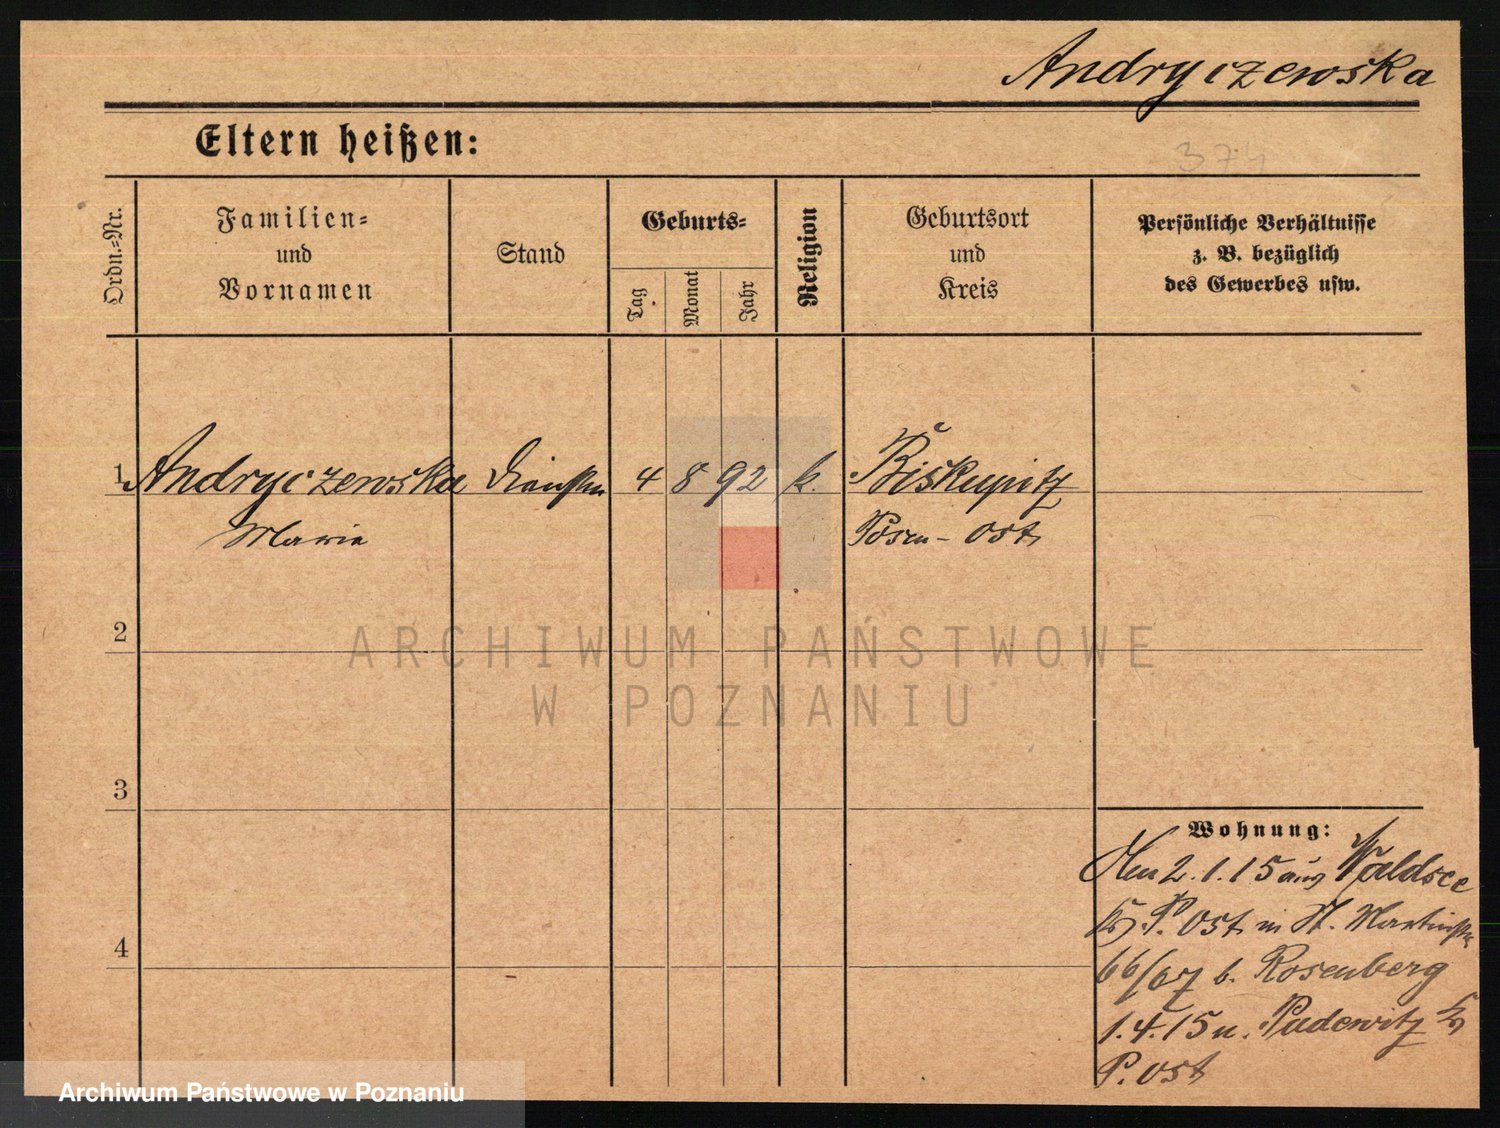 Andryczewska
Eltern heißen:
374
Ordn.=Nr.
Familien=
und
Vornamen
Stand
Geburts=
Tag
Monat
Jahr
Religion
Geburtsort
und
Kreis
Persönliche Verhältnisse
z. B. bezüglich
des Gewerbes usw.
1. Andryczewska 4 8 92 k. Biskupitz
Maria Posen - Ost
2
3
4
Wohnung:
2.1.15 aus Waldsee
P. Ost in St. Martinstr
66/67 b. Rosenberg
1.4.15 n. Pudewitz
P. Ost
ARCHIWUM PAŃSTWOWE
W POZNANIU
Archiwum Państwowe w Poznaniu